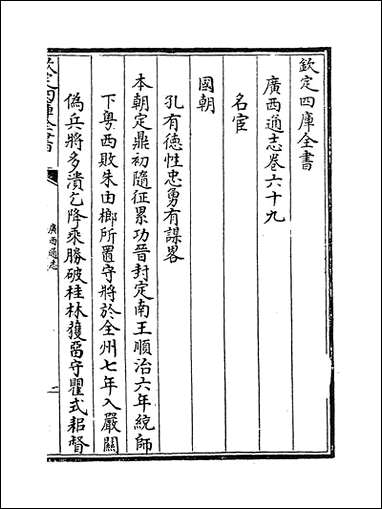 欽定四庫全書
廣西通志卷六十九
名宦
國朝
孔有德性忠勇有謀畧
本朝定鼎初隨征累功晉封定南王順治六年統師
下粤西敗朱由榔所置守將於全州七年入嚴關
偽兵將多潰乞降乘勝破桂林獲畱守瞿式耜督
欽定四庫全書
廣西通志
一